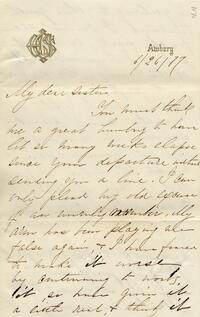 Ambury
6/26/77
My dear Sister
You must think
me a great humbug to have
let so many weeks elapse
since your departure without
sending you a line. I can
only plead my old excuse
of an unruly member. My
arm has been playing me
false again, & I have feared
to make it worse
by continuing to work
it, so have given it
a little rest & think it